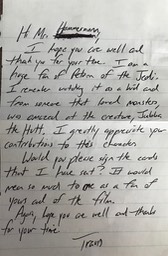 Hi Mr.
I hope you are well and
thank you for your time. I am a
huge fan of Return of the Jedi.
I remember watching it as a kid and
from someone that loved monsters,
was amazed at the creature, Jabba
the Hutt. I greatly appreciate your
contributions to this character.
Would you please sign the cards
that I have sent? It would
mean so much to me as a fan of
your and of the film.
Again, hope you are well and thanks
for your time.